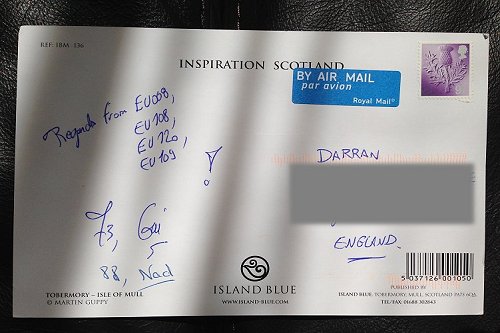 REF: IBM 136
INSPIRATION SCOTLAND
BY AIR MAIL
par avion
Royal Mail®
Regards from EU008,
EU108,
EU120,
EU109
!
73,
5
88, Nad
DARRAN
ENGLAND.
TOBERMORY – ISLE OF MULL
© MARTIN GUPPY
ISLAND BLUE
WWW.ISLAND-BLUE.COM
5 037126 001050
PUBLISHED BY
ISLAND BLUE, TOBERMORY, MULL, SCOTLAND PA75 6QA
TEL/FAX: 01688 302643